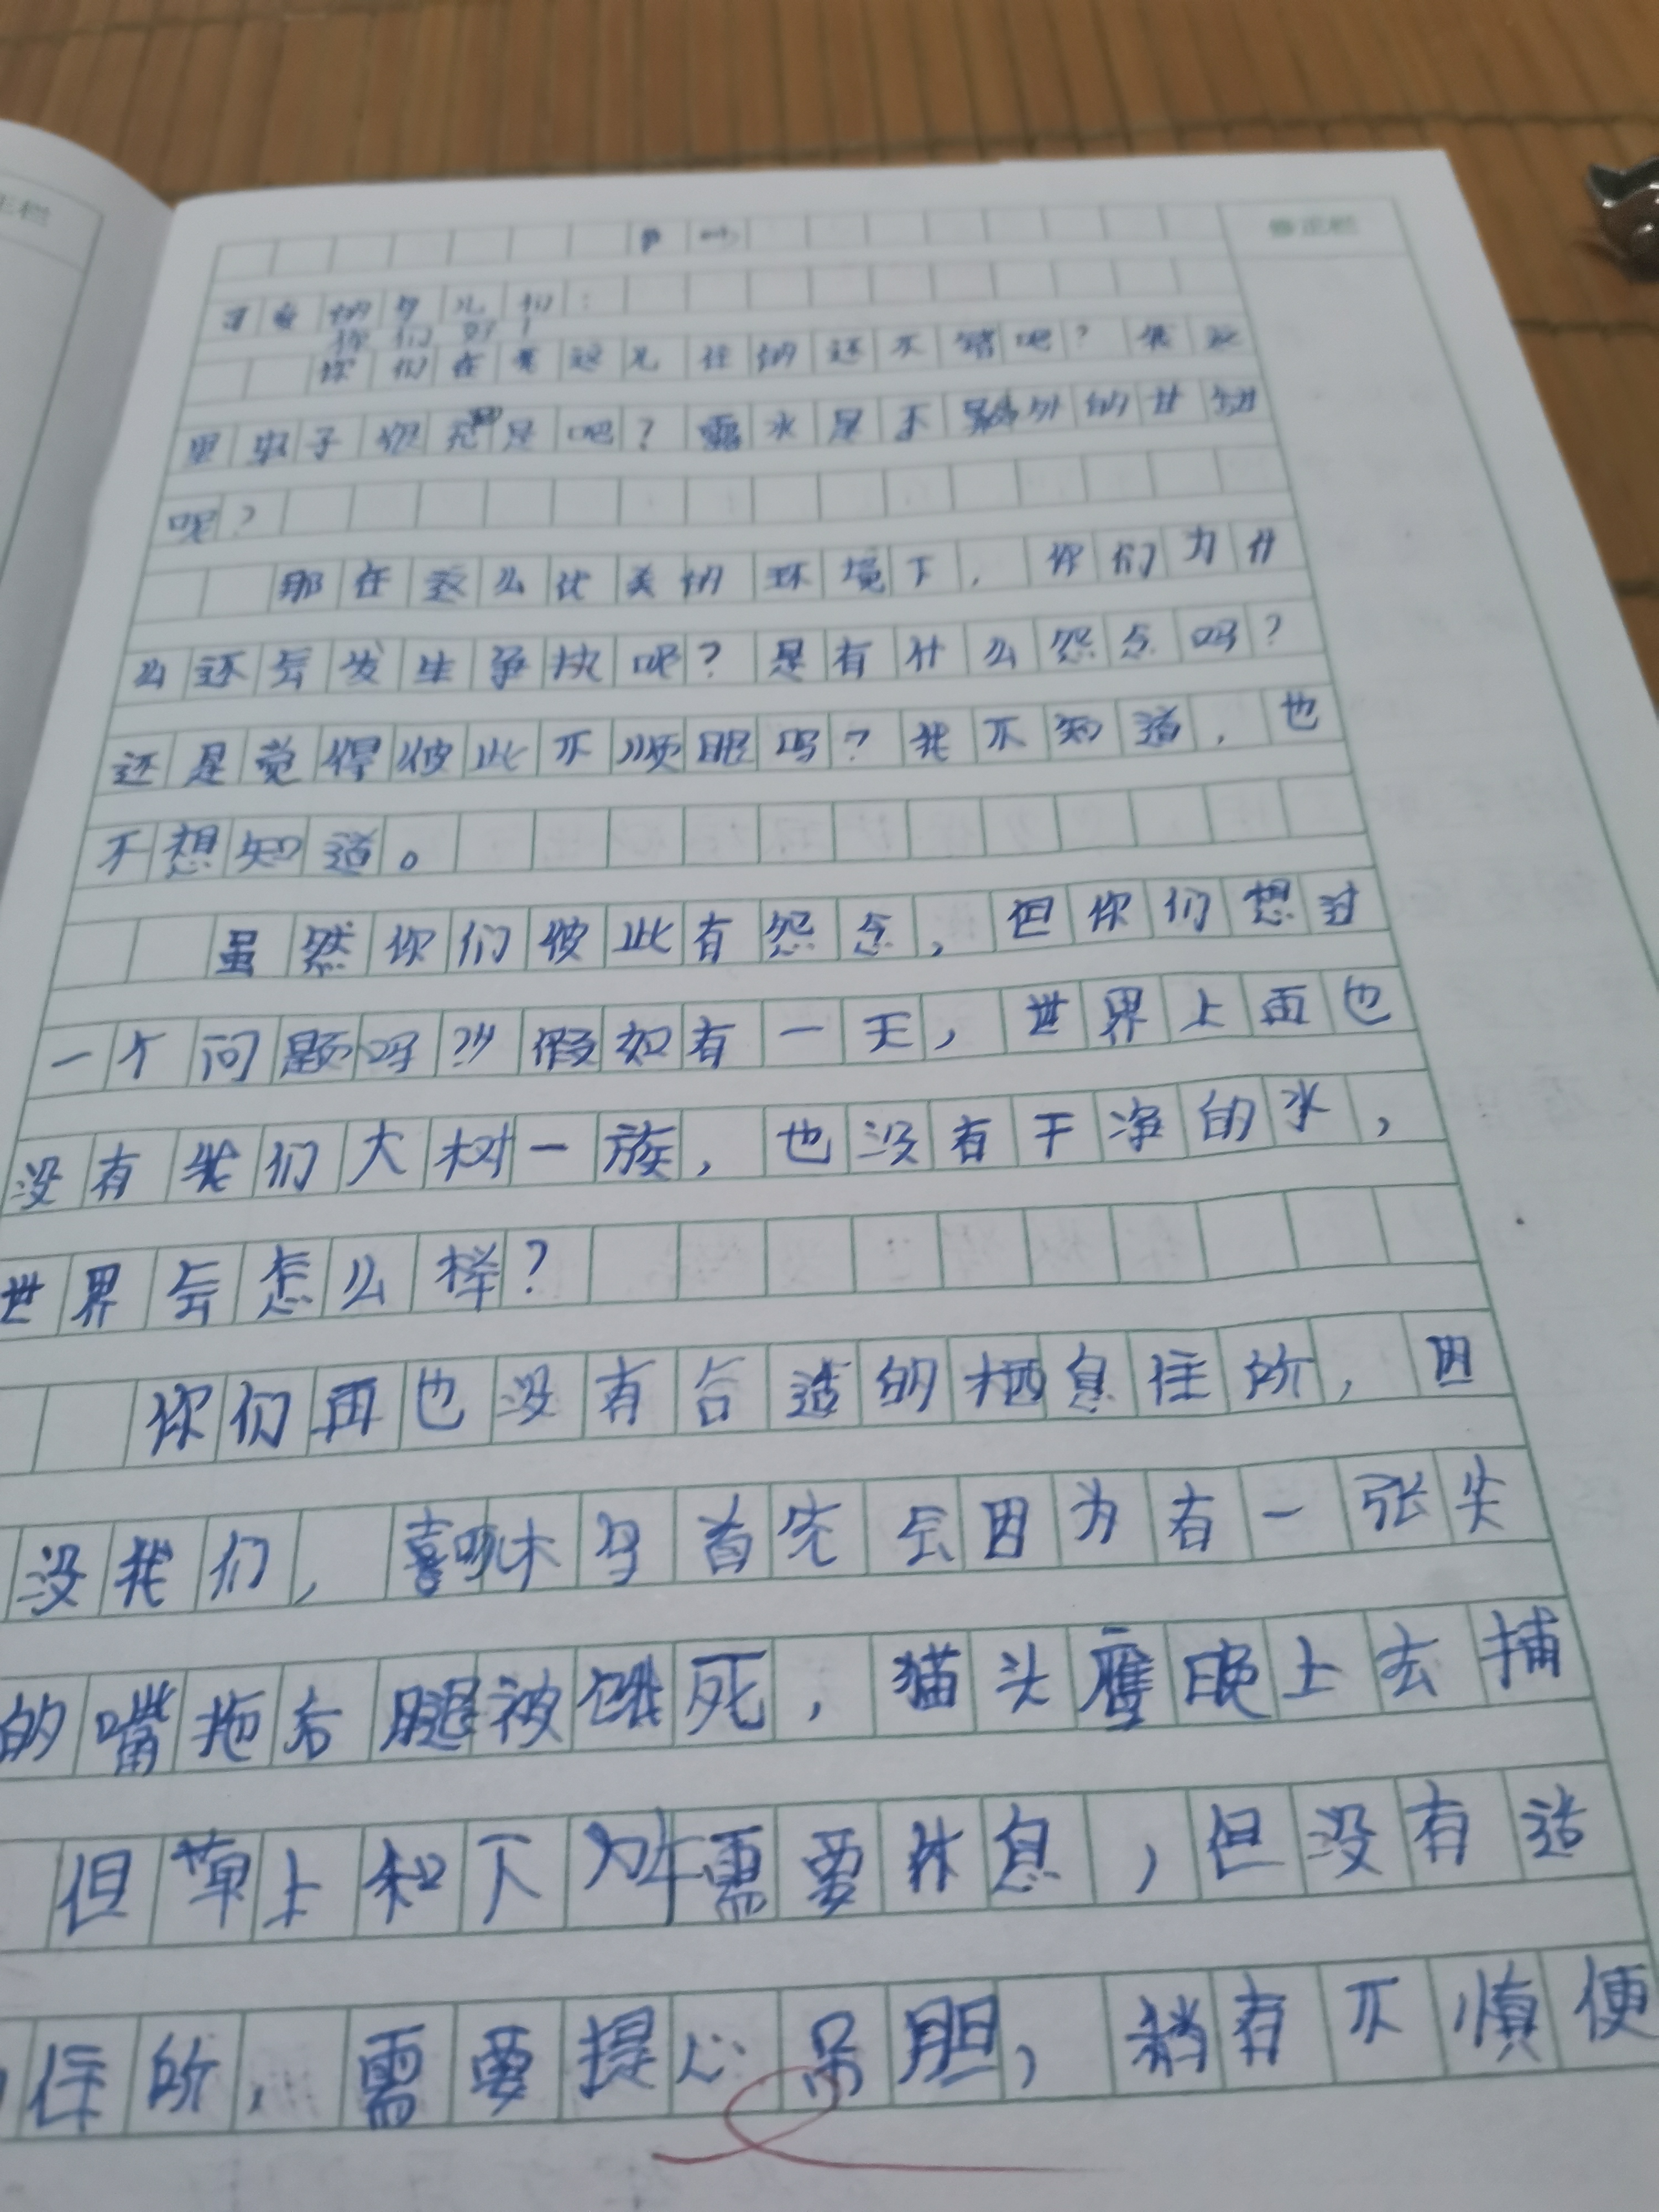 修正栏
可爱的鸟儿们:
你们好!
你们在我这儿住的还不错吧? 我这
里虫子很充足吧? 露水是不是格外的甘甜
呢?
那在这么优美的环境下,你们为什
么还会发生争执呢? 是有什么怨言吗?
还是觉得彼此不顺眼吗? 我不知道,也
不想知道。
虽然你们彼此有怨言,但你们想过
一个问题吗?假如有一天,世界上再也
没有我们大树一族,也没有干净的水,
世界会怎么样?
你们再也没有合适的栖息住所,因
没我们,啄木鸟首先会因为有一张尖
的嘴拖后腿被饿死,猫头鹰晚上去捕
但草上和下需要休息,但没有适
住所,需要提心吊胆,稍有不慎便